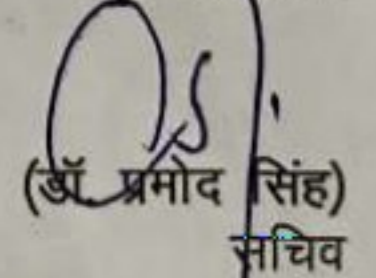 (डॉ. प्रमोद सिंह)
सचिव